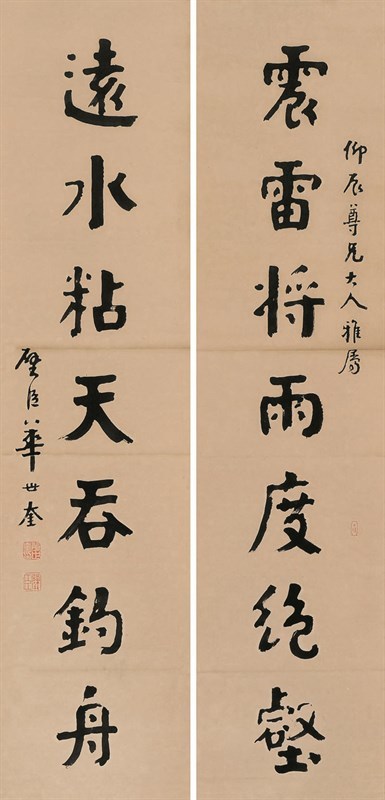 仰辰尊兄大人雅属
震雷将雨度绝壑
遠水粘天吞釣舟
璧臣华世奎